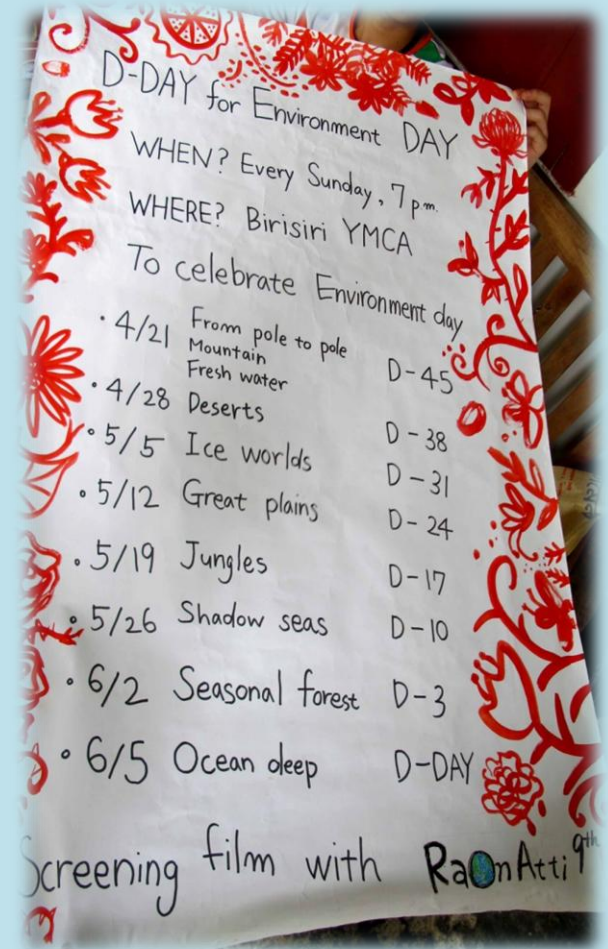 D-DAY for Environment DAY
WHEN? Every Sunday, 7 p.m.
WHERE? Birisiri YMCA
To celebrate Environment day
• 4/21 From pole to pole
Mountain
Fresh water D-45
• 4/28 Deserts D-38
• 5/5 Ice worlds D-31
• 5/12 Great plains D-24
• 5/19 Jungles D-17
• 5/26 Shadow seas D-10
• 6/2 Seasonal forest D-3
• 6/5 Ocean deep D-DAY
Screening film with RaOnAtti 9th